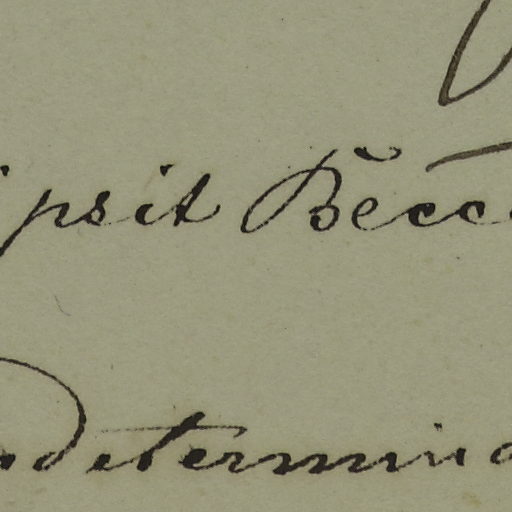 ipsit Becc
determina